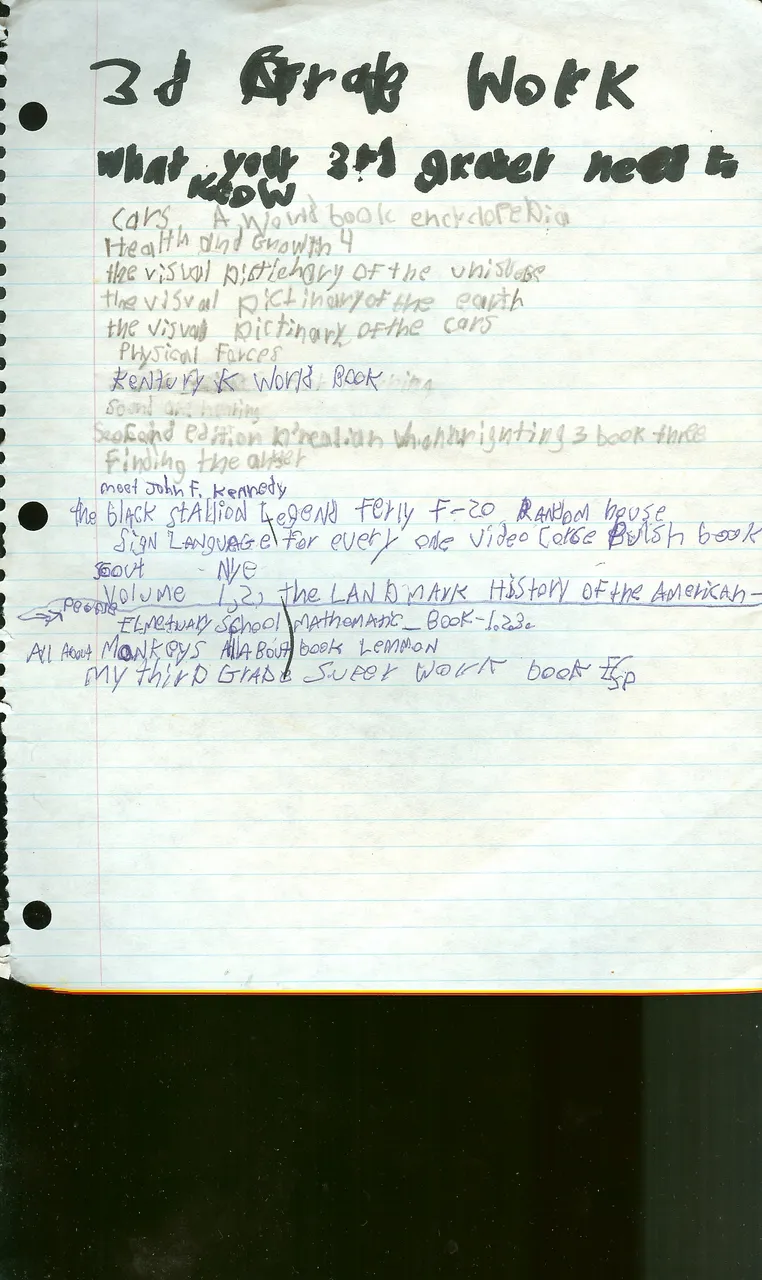 3d Grade Work
What your 3rd grader need to
know
Cars A World book encyclopedia
Health and Growth 4
the visual Dictionary of the universe
the visual Dictinary of the earth
the visual Dictinary of the cars
Physical Forces
Kentury K World Book
Sound and hearing
edition 3 book three
Finding the
meet John F. Kennedy
the black stAllion Legend Ferly F-20 RAndom house
Sign LANGUAGE for every one video Corse book
Nye
Volume 1,2, the LANDMARK HIStory OF the AmericAn-
→ People
School MAthematic_ Book-1.2.3.
All About Monkeys AllAbout book Lemmon
My thirD GRADE Super Work book